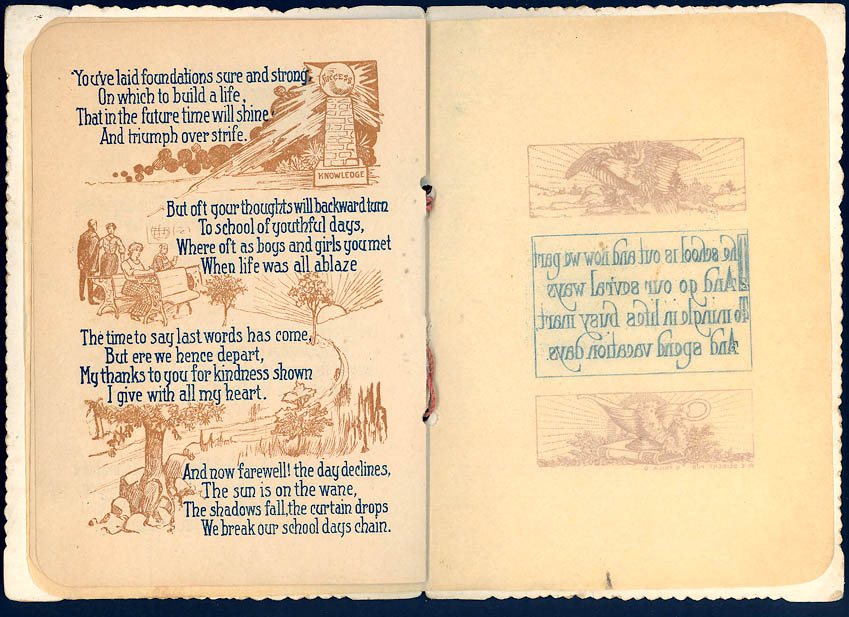 You've laid foundations sure and strong,
On which to build a life,
That in the future time will shine
And triumph over strife.
SUCCESS
KNOWLEDGE
But oft your thoughts will backward turn
To school of youthful days,
Where oft as boys and girls you met
When life was all ablaze
The time to say last words has come,
But ere we hence depart,
My thanks to you for kindness shown
I give with all my heart.
And now farewell! the day declines,
The sun is on the wane,
The shadows fall, the curtain drops
We break our school days chain.
The school is out and now we part
And go our several ways
To mingle in life's busy mart,
And spend vacation days.